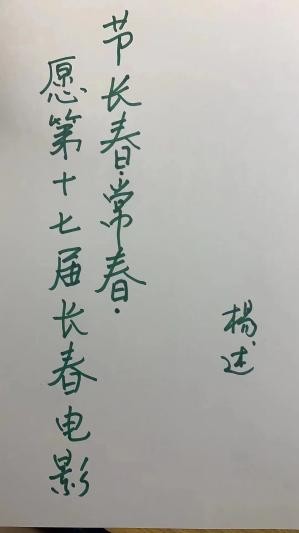 愿第十七届长春电影
节长春·常春·
杨述